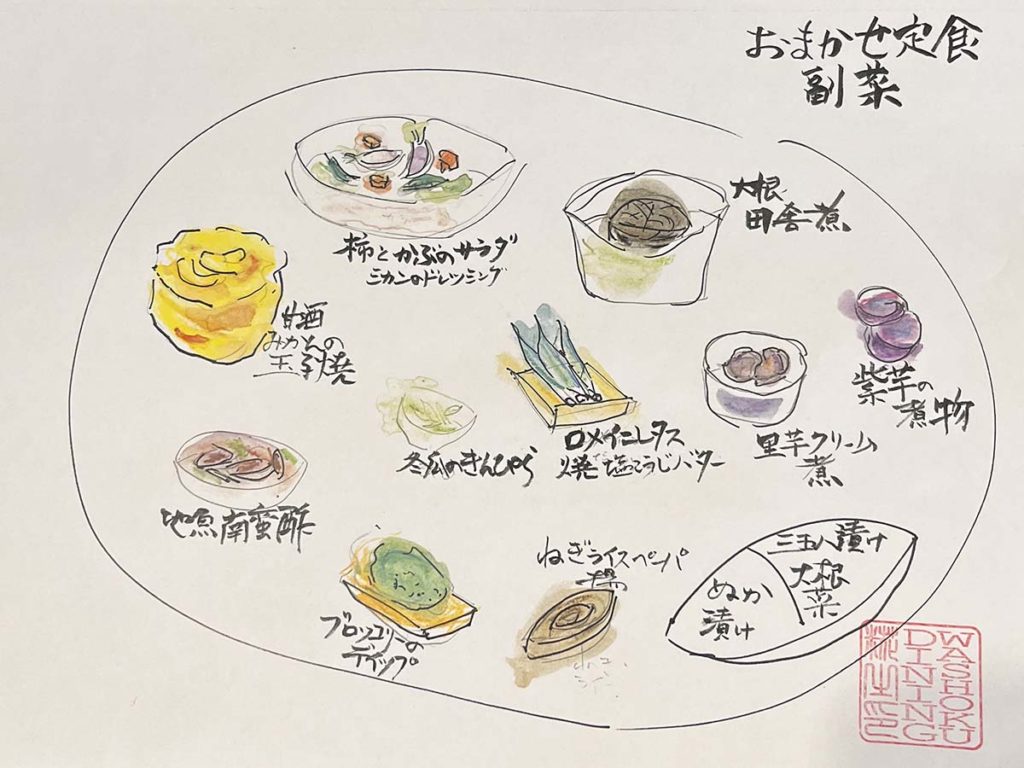 おまかせ定食
副菜
柿とかぶのサラダ
ミカンのドレッシング
大根
田舎煮
甘酒
みかんの
玉子焼
紫芋の
煮物
冬瓜のきんぴら
ロメインレタス
焼 塩こうじバター
里芋クリーム
煮
地魚南蛮酢
ブロッコリーの
ディップ
ねぎライスペーパ
揚
三五八漬け
大根
菜
ぬか
漬け
WASHOKU
DINING